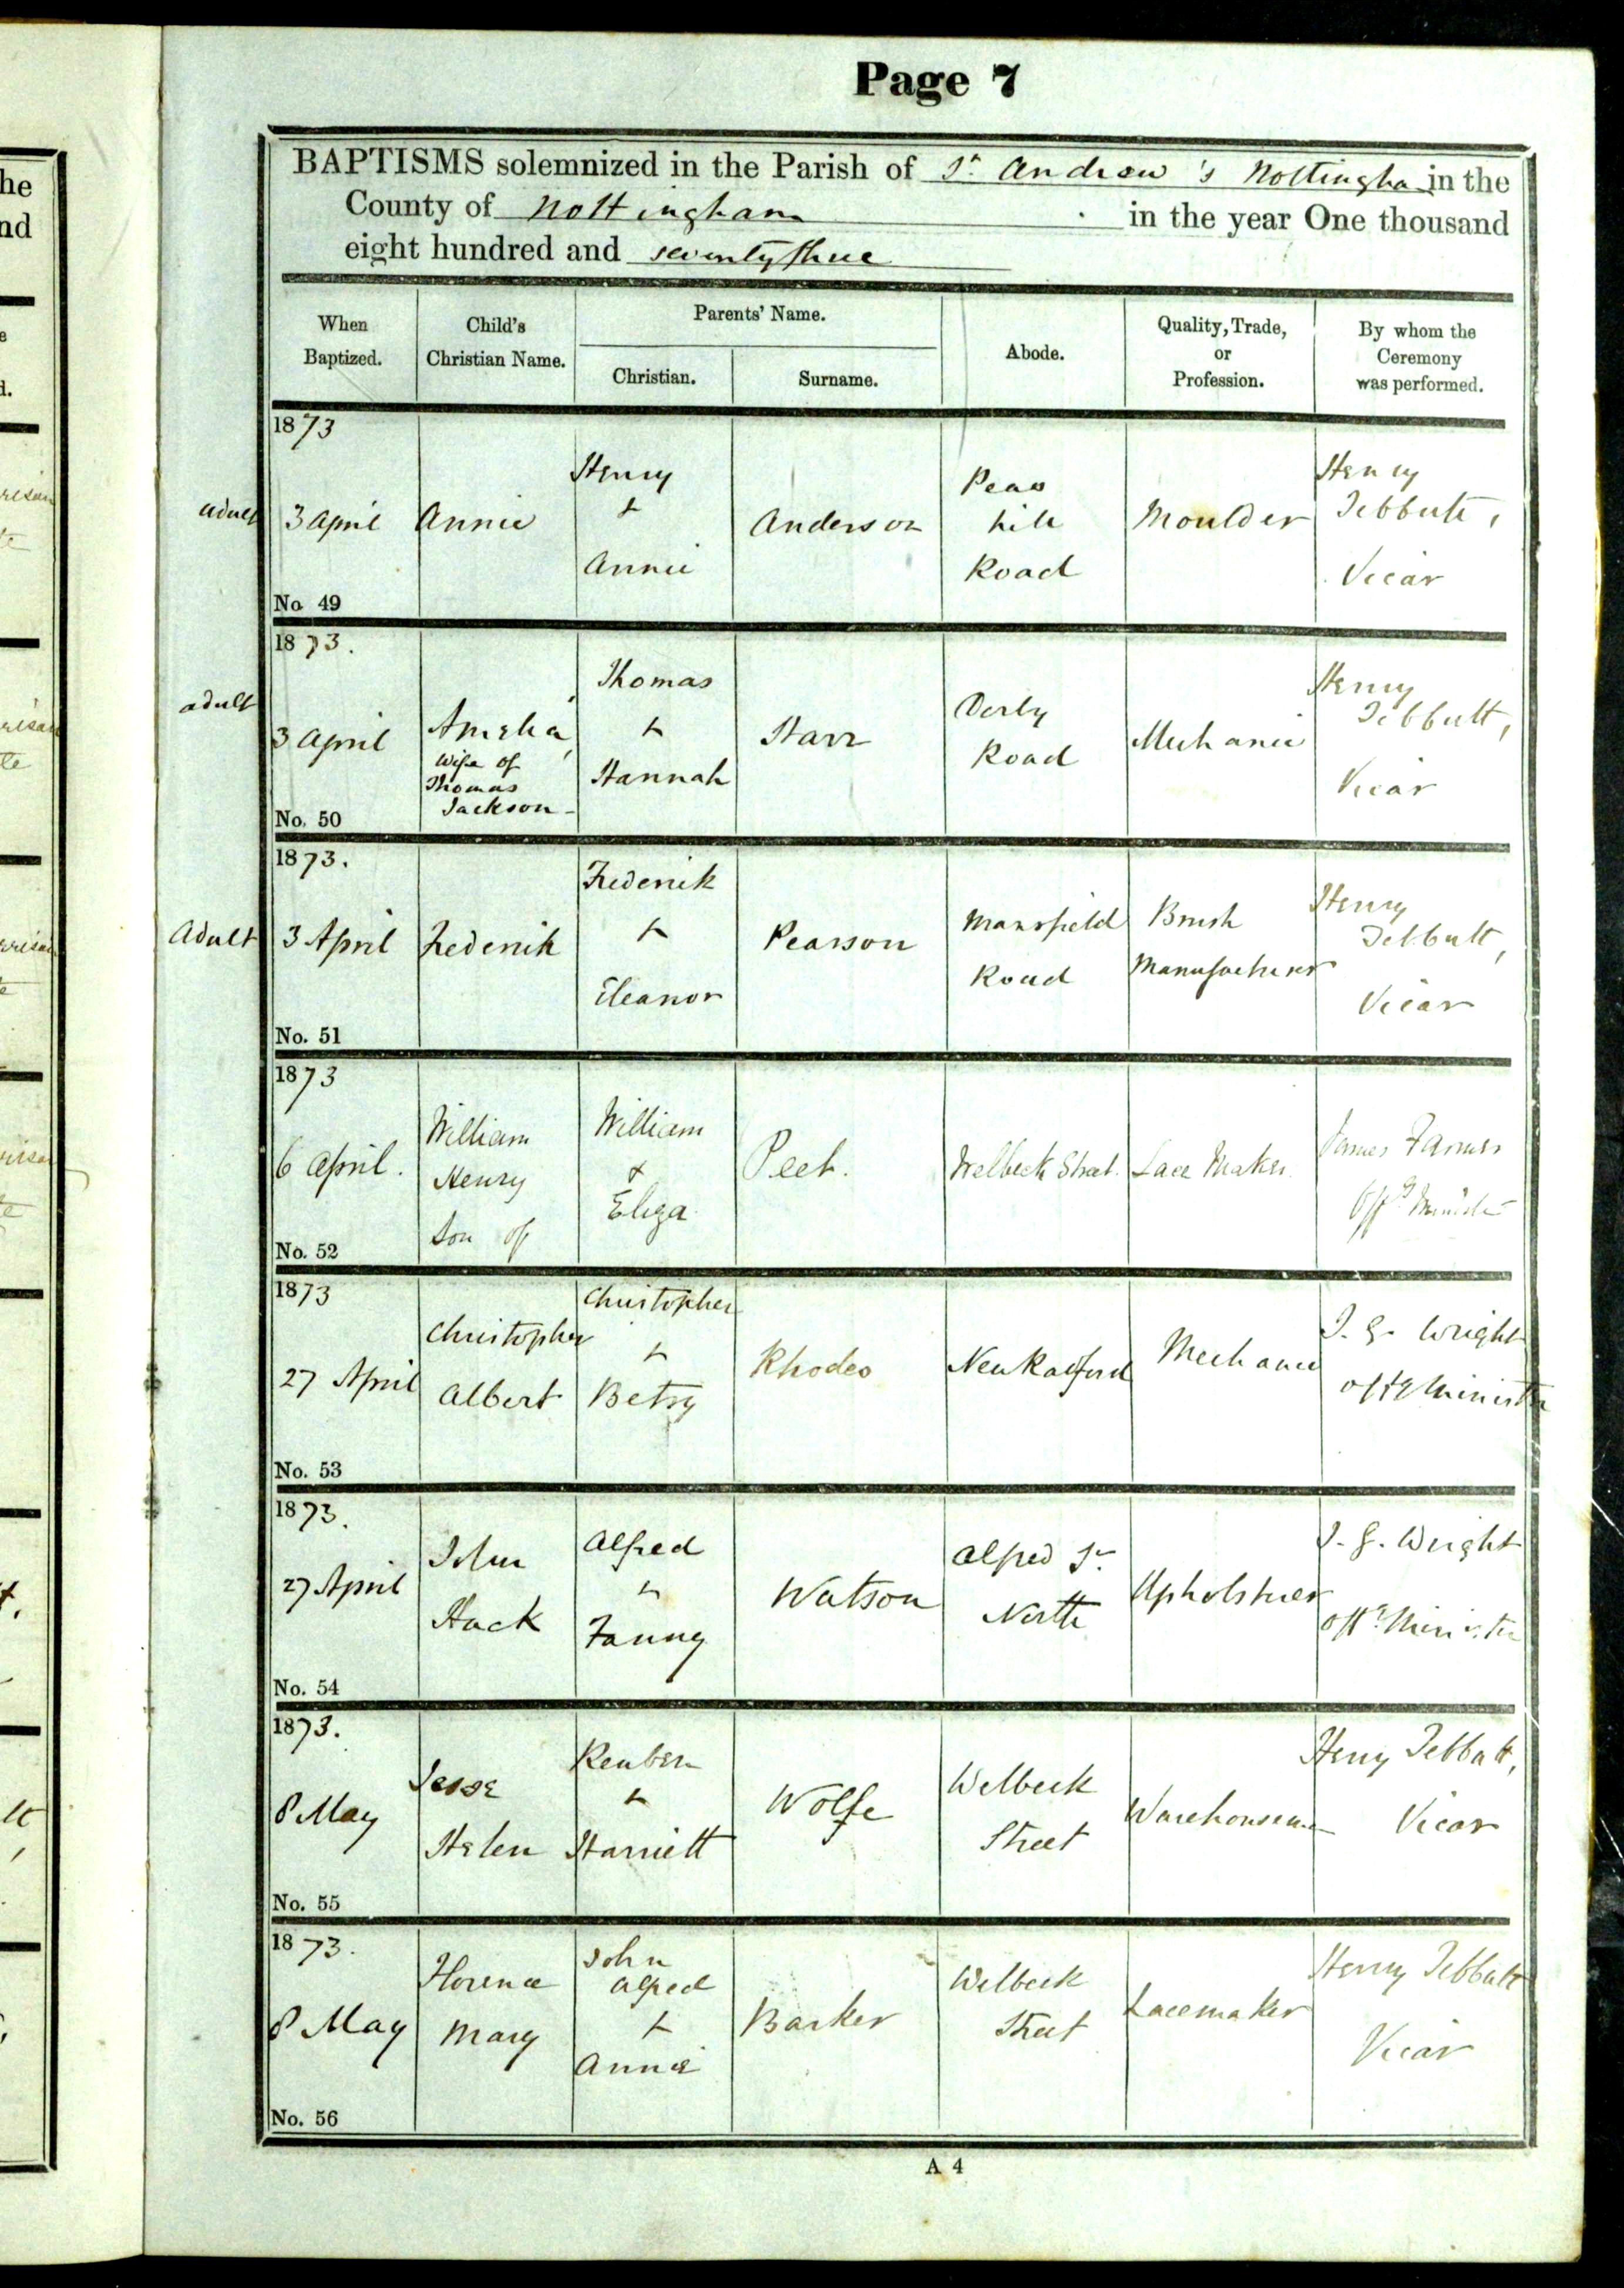 Page 7
BAPTISMS solemnized in the Parish of St Andrew's Nottingham in the
County of Nottingham in the year One thousand
eight hundred and seventy three
When Baptized.
Child's Christian Name.
Parents' Name.
Christian.
Surname.
Abode.
Quality, Trade, or Profession.
By whom the Ceremony was performed.
1873
adult
3 April
No. 49
Annie
Henry
&
Annie
Anderson
Peas
hill
Road
Moulder
Henry
Tebbutt,
Vicar
1873.
adult
3 April
No. 50
Amelia,
Wife of
Thomas
Jackson
Thomas
&
Hannah
Starr
Derby
Road
Mechanic
Henry
Tebbutt,
Vicar
1873.
Adult
3 April
No. 51
Frederik
Frederik
&
Eleanor
Pearson
Mansfield
Road
Brush
Manufacturer
Henry
Tebbutt,
Vicar
1873
6 April.
No. 52
William
Henry
Son of
William
&
Eliza
Peet.
Welbeck Street.
Lace Maker.
James Farmer
Offg Minister
1873
27 April
No. 53
Christopher
Albert
Christopher
&
Betsy
Rhodes
New Radford
Mechanic
Wright
Offg Minister
1873.
27 April
No. 54
John
Hack
Alfred
&
Fanny
Watson
Alfred St
North
Upholsterer
Wright
Offg Minister
1873.
8 May
No. 55
Jesse
Helen
Reuben
&
Harriett
Wolfe
Welbeck
Street
Warehouseman
Henry Tebbutt,
Vicar
1873.
8 May
No. 56
Florence
Mary
John
Alfred
&
Annie
Barker
Welbeck
Street
Lacemaker
Henry Tebbutt
Vicar
A 4